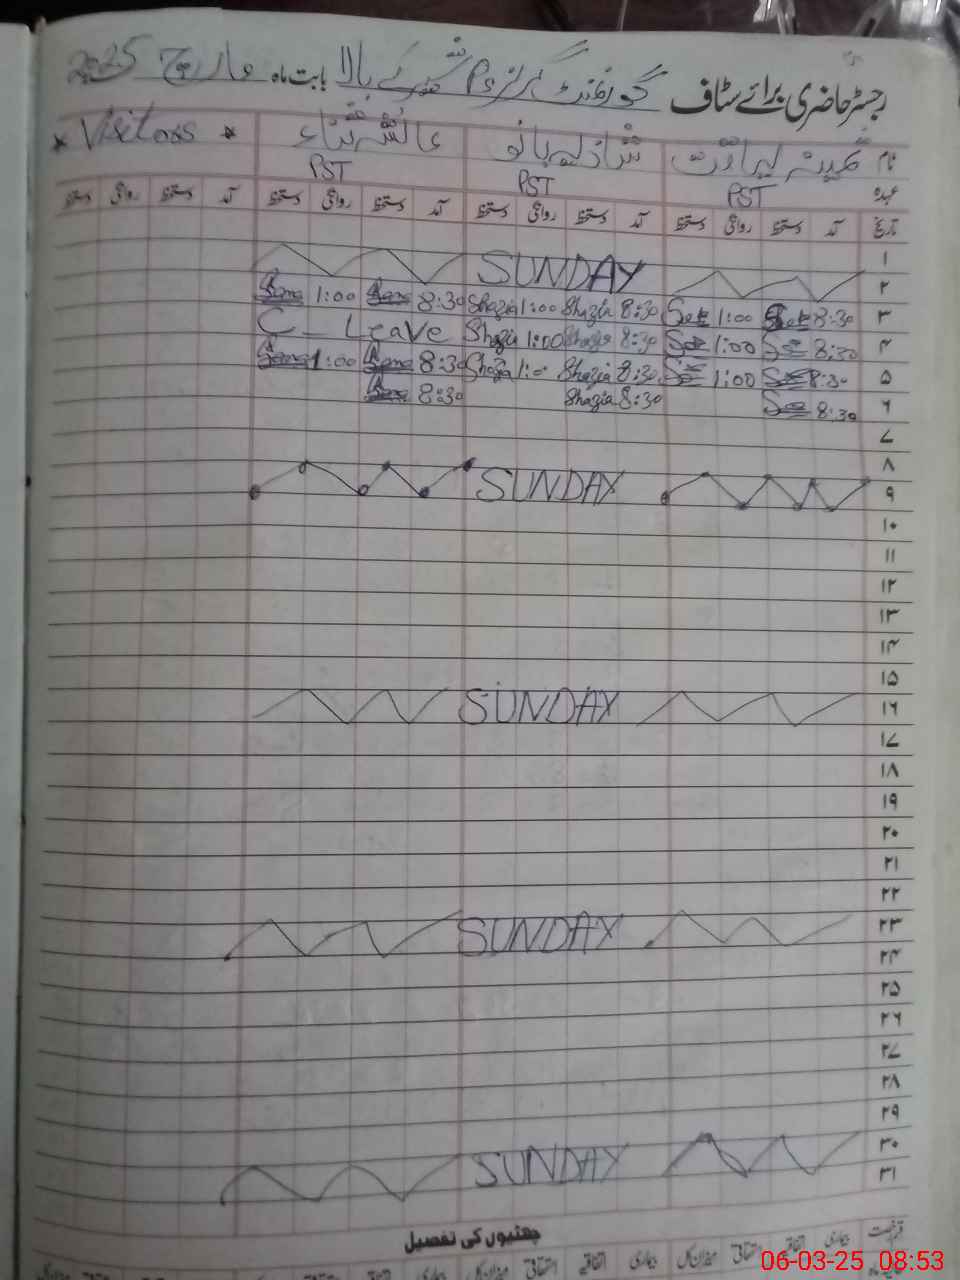 رجسٹر حاضری برائے سٹاف گورنمنٹ گرلز PS بالا بابت ماہ مارچ 2025
نام شازیہ بانو عائشہ ثناء * Visitors *
عہدہ PST PST PST
تاریخ آمد دستخط روانگی دستخط آمد دستخط روانگی دستخط آمد دستخط روانگی دستخط آمد دستخط روانگی دستخط
۱
۲ SUNDAY
۳ 8:30 1:00 8:30 Shazia 1:00 Shazia 8:30 1:00
۴ 8:30 1:00 8:30 Shazia 1:00 Shazia C-Leave
۵ 8:30 1:00 8:30 Shazia 1:00 Shazia 8:30 1:00
۶ 8:30 8:30 Shazia 8:30
۷
۸
۹ SUNDAY
۱۰
۱۱
۱۲
۱۳
۱۴
۱۵
۱۶ SUNDAY
۱۷
۱۸
۱۹
۲۰
۲۱
۲۲
۲۳ SUNDAY
۲۴
۲۵
۲۶
۲۷
۲۸
۲۹
۳۰ SUNDAY
۳۱
چھٹیوں کی تفصیل
قسم رخصت بیماری اتفاقیہ استحقاقی میزان کل بیماری اتفاقیہ استحقاقی میزان کل بیماری اتفاقیہ استحقاقی میزان کل
06-03-25 08:53